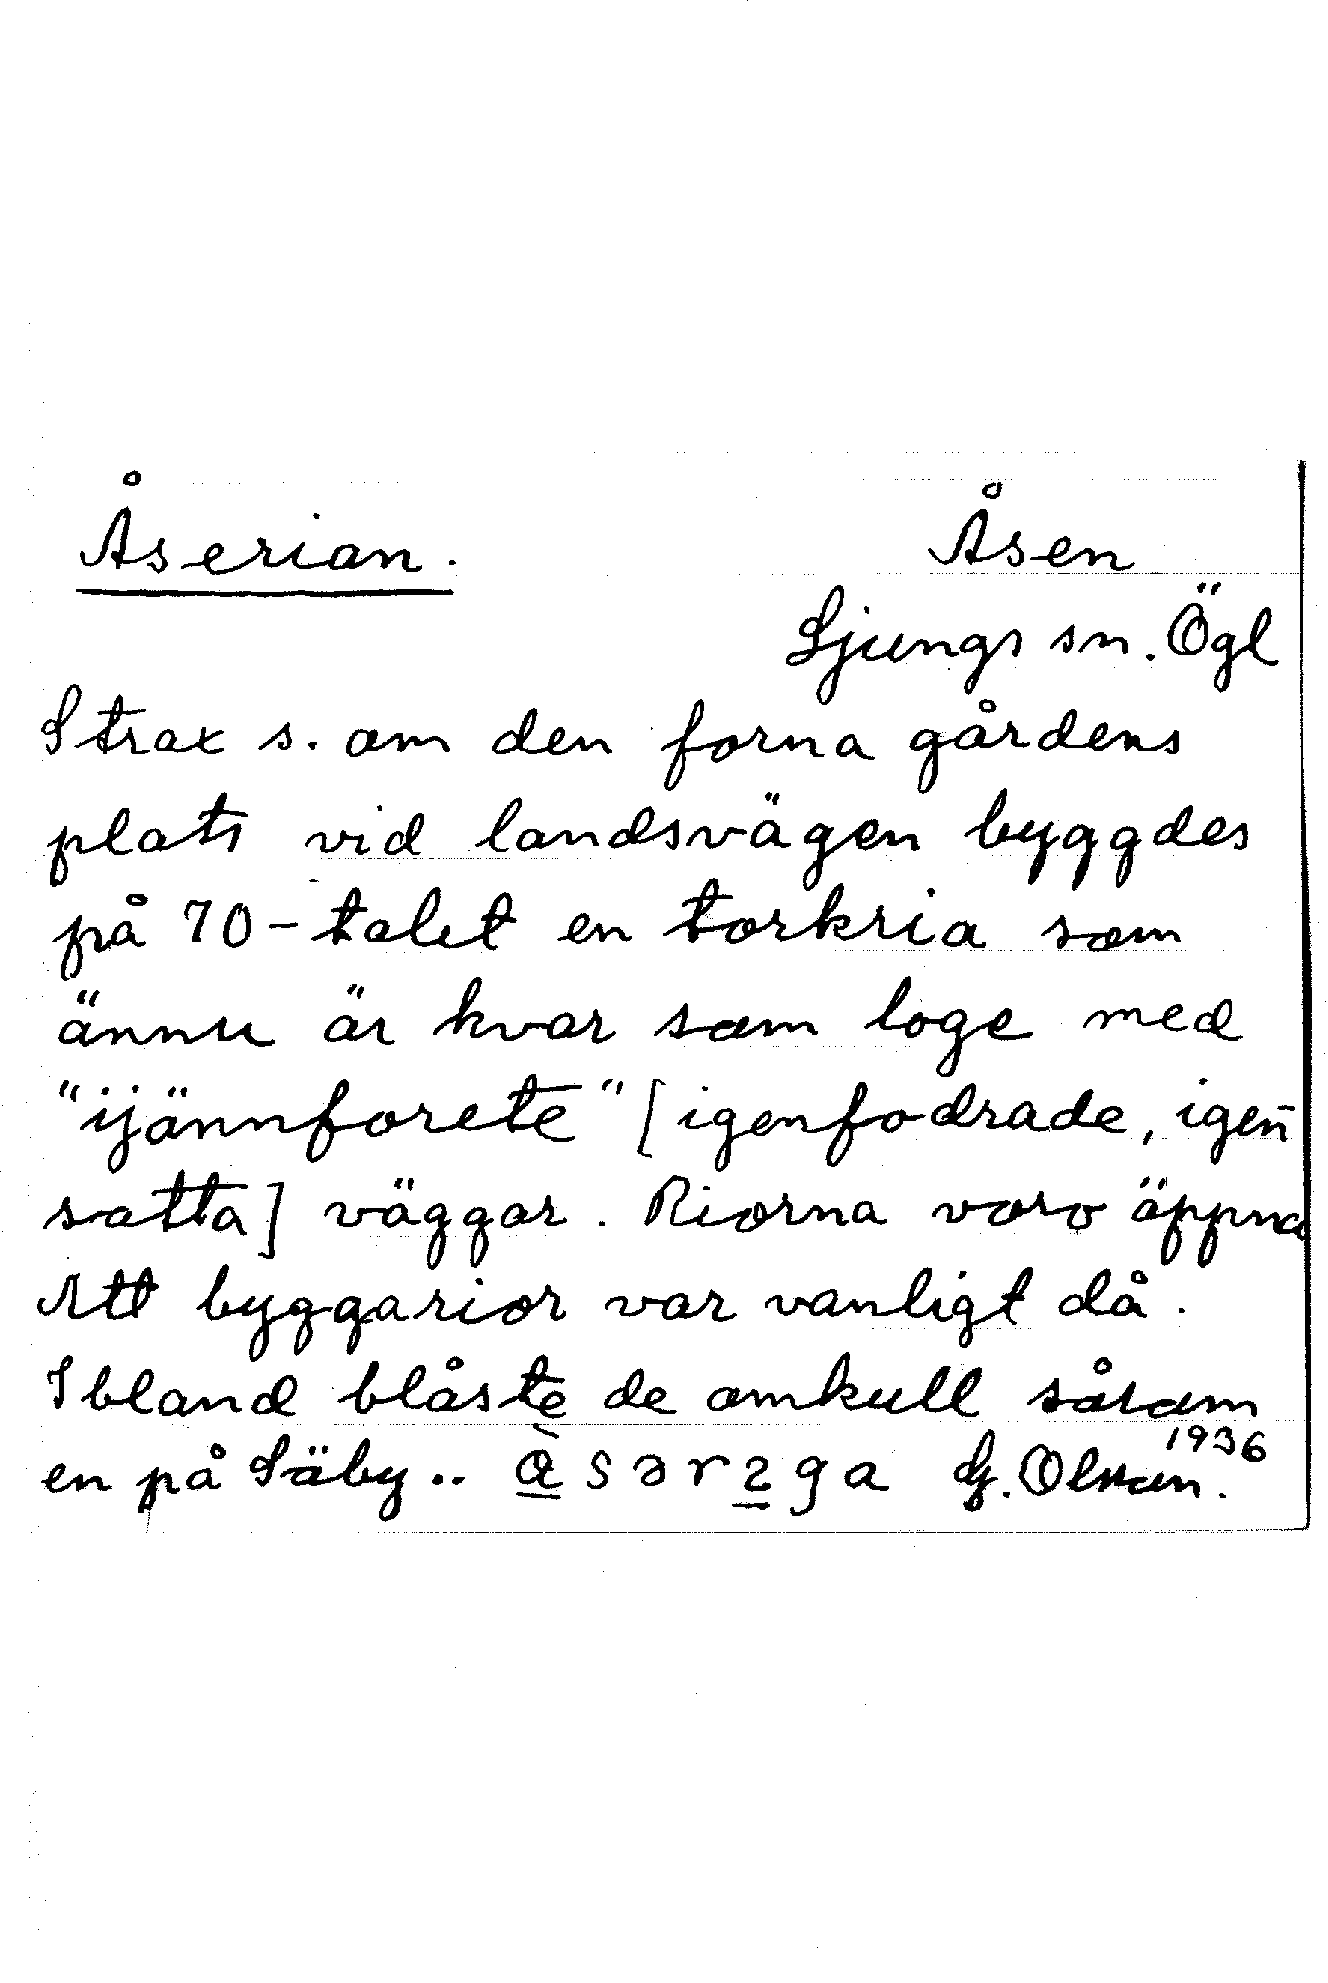 Åserian. Åsen
Ljungs sn. Ögl
Strax s. om den forna gårdens
plats vid landsvägen byggdes
på 70-talet en torkria som
ännu är kvar som loge med
"ijännforete" [igenfodrade, igen-
satta] väggar. Riorna voro äppna
Att byggarior var vanligt då.
Ibland blåste de omkull såsom
en på Säby..  G. Olson. 1936